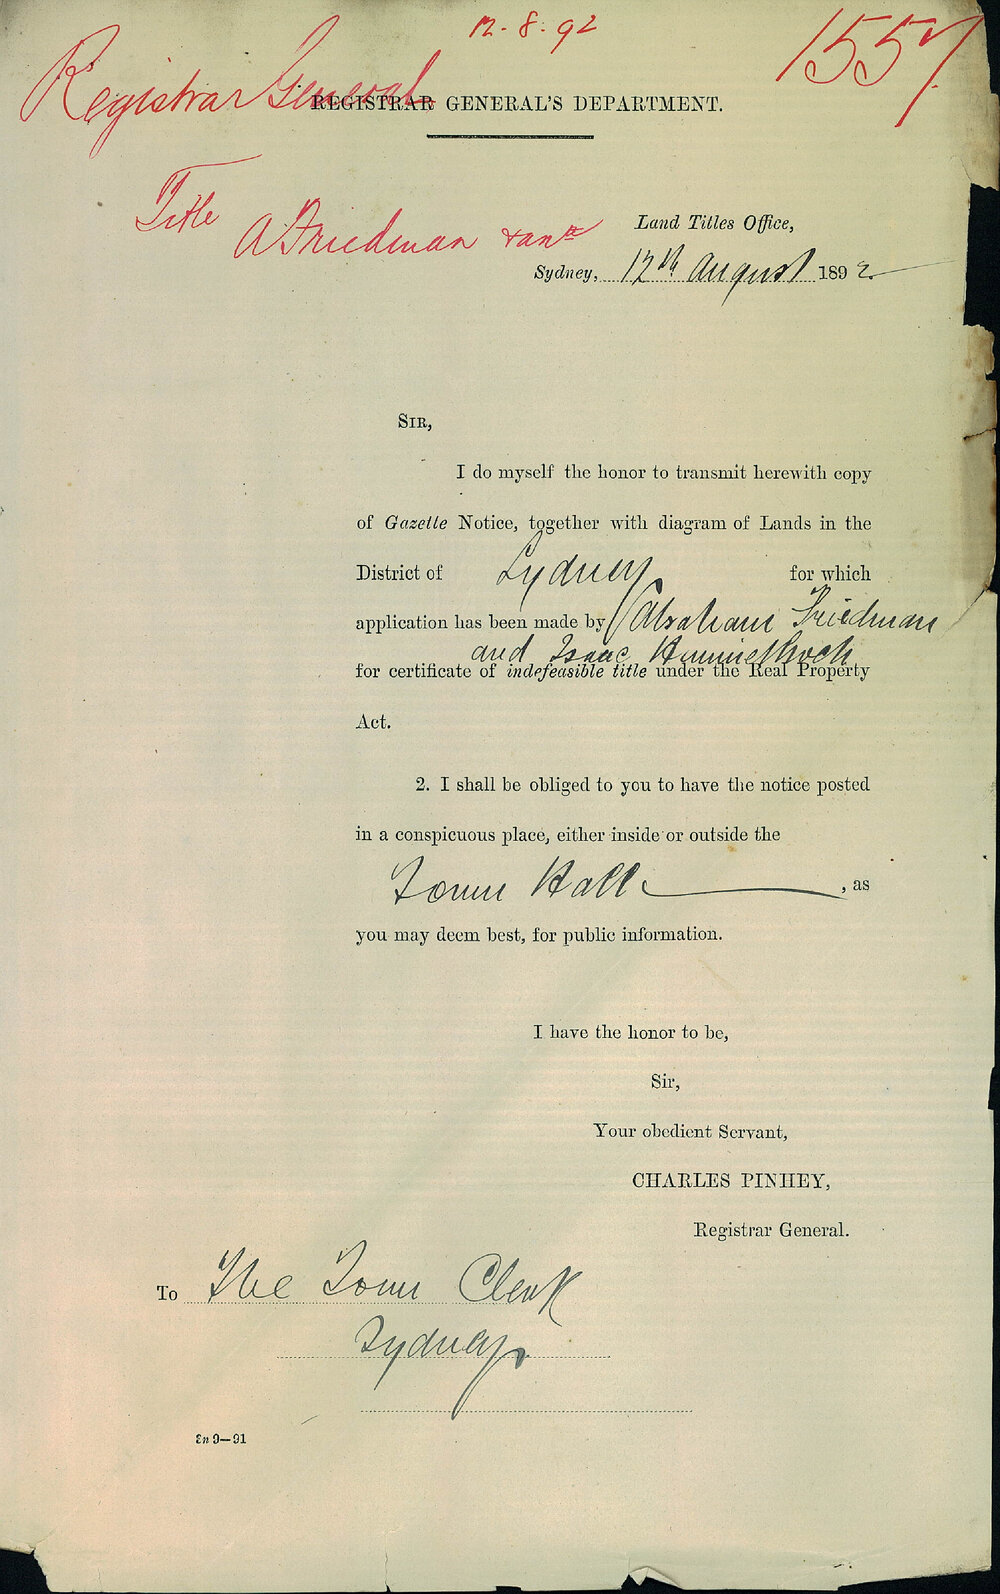 12.8.92
1557
Registrar General
REGISTRAR GENERAL'S DEPARTMENT.
Title
A Friedman & anr
Land Titles Office,
Sydney, 12th August 1892.
SIR,
I do myself the honor to transmit herewith copy
of Gazette Notice, together with diagram of Lands in the
District of Sydney for which
application has been made by Abraham Friedman
and Isaac Himmelhoch
for certificate of indefeasible title under the Real Property
Act.
2. I shall be obliged to you to have the notice posted
in a conspicuous place, either inside or outside the
Town Hall, as
you may deem best, for public information.
I have the honor to be,
Sir,
Your obedient Servant,
CHARLES PINHEY,
Registrar General.
To The Town Clerk
Sydney
9—91